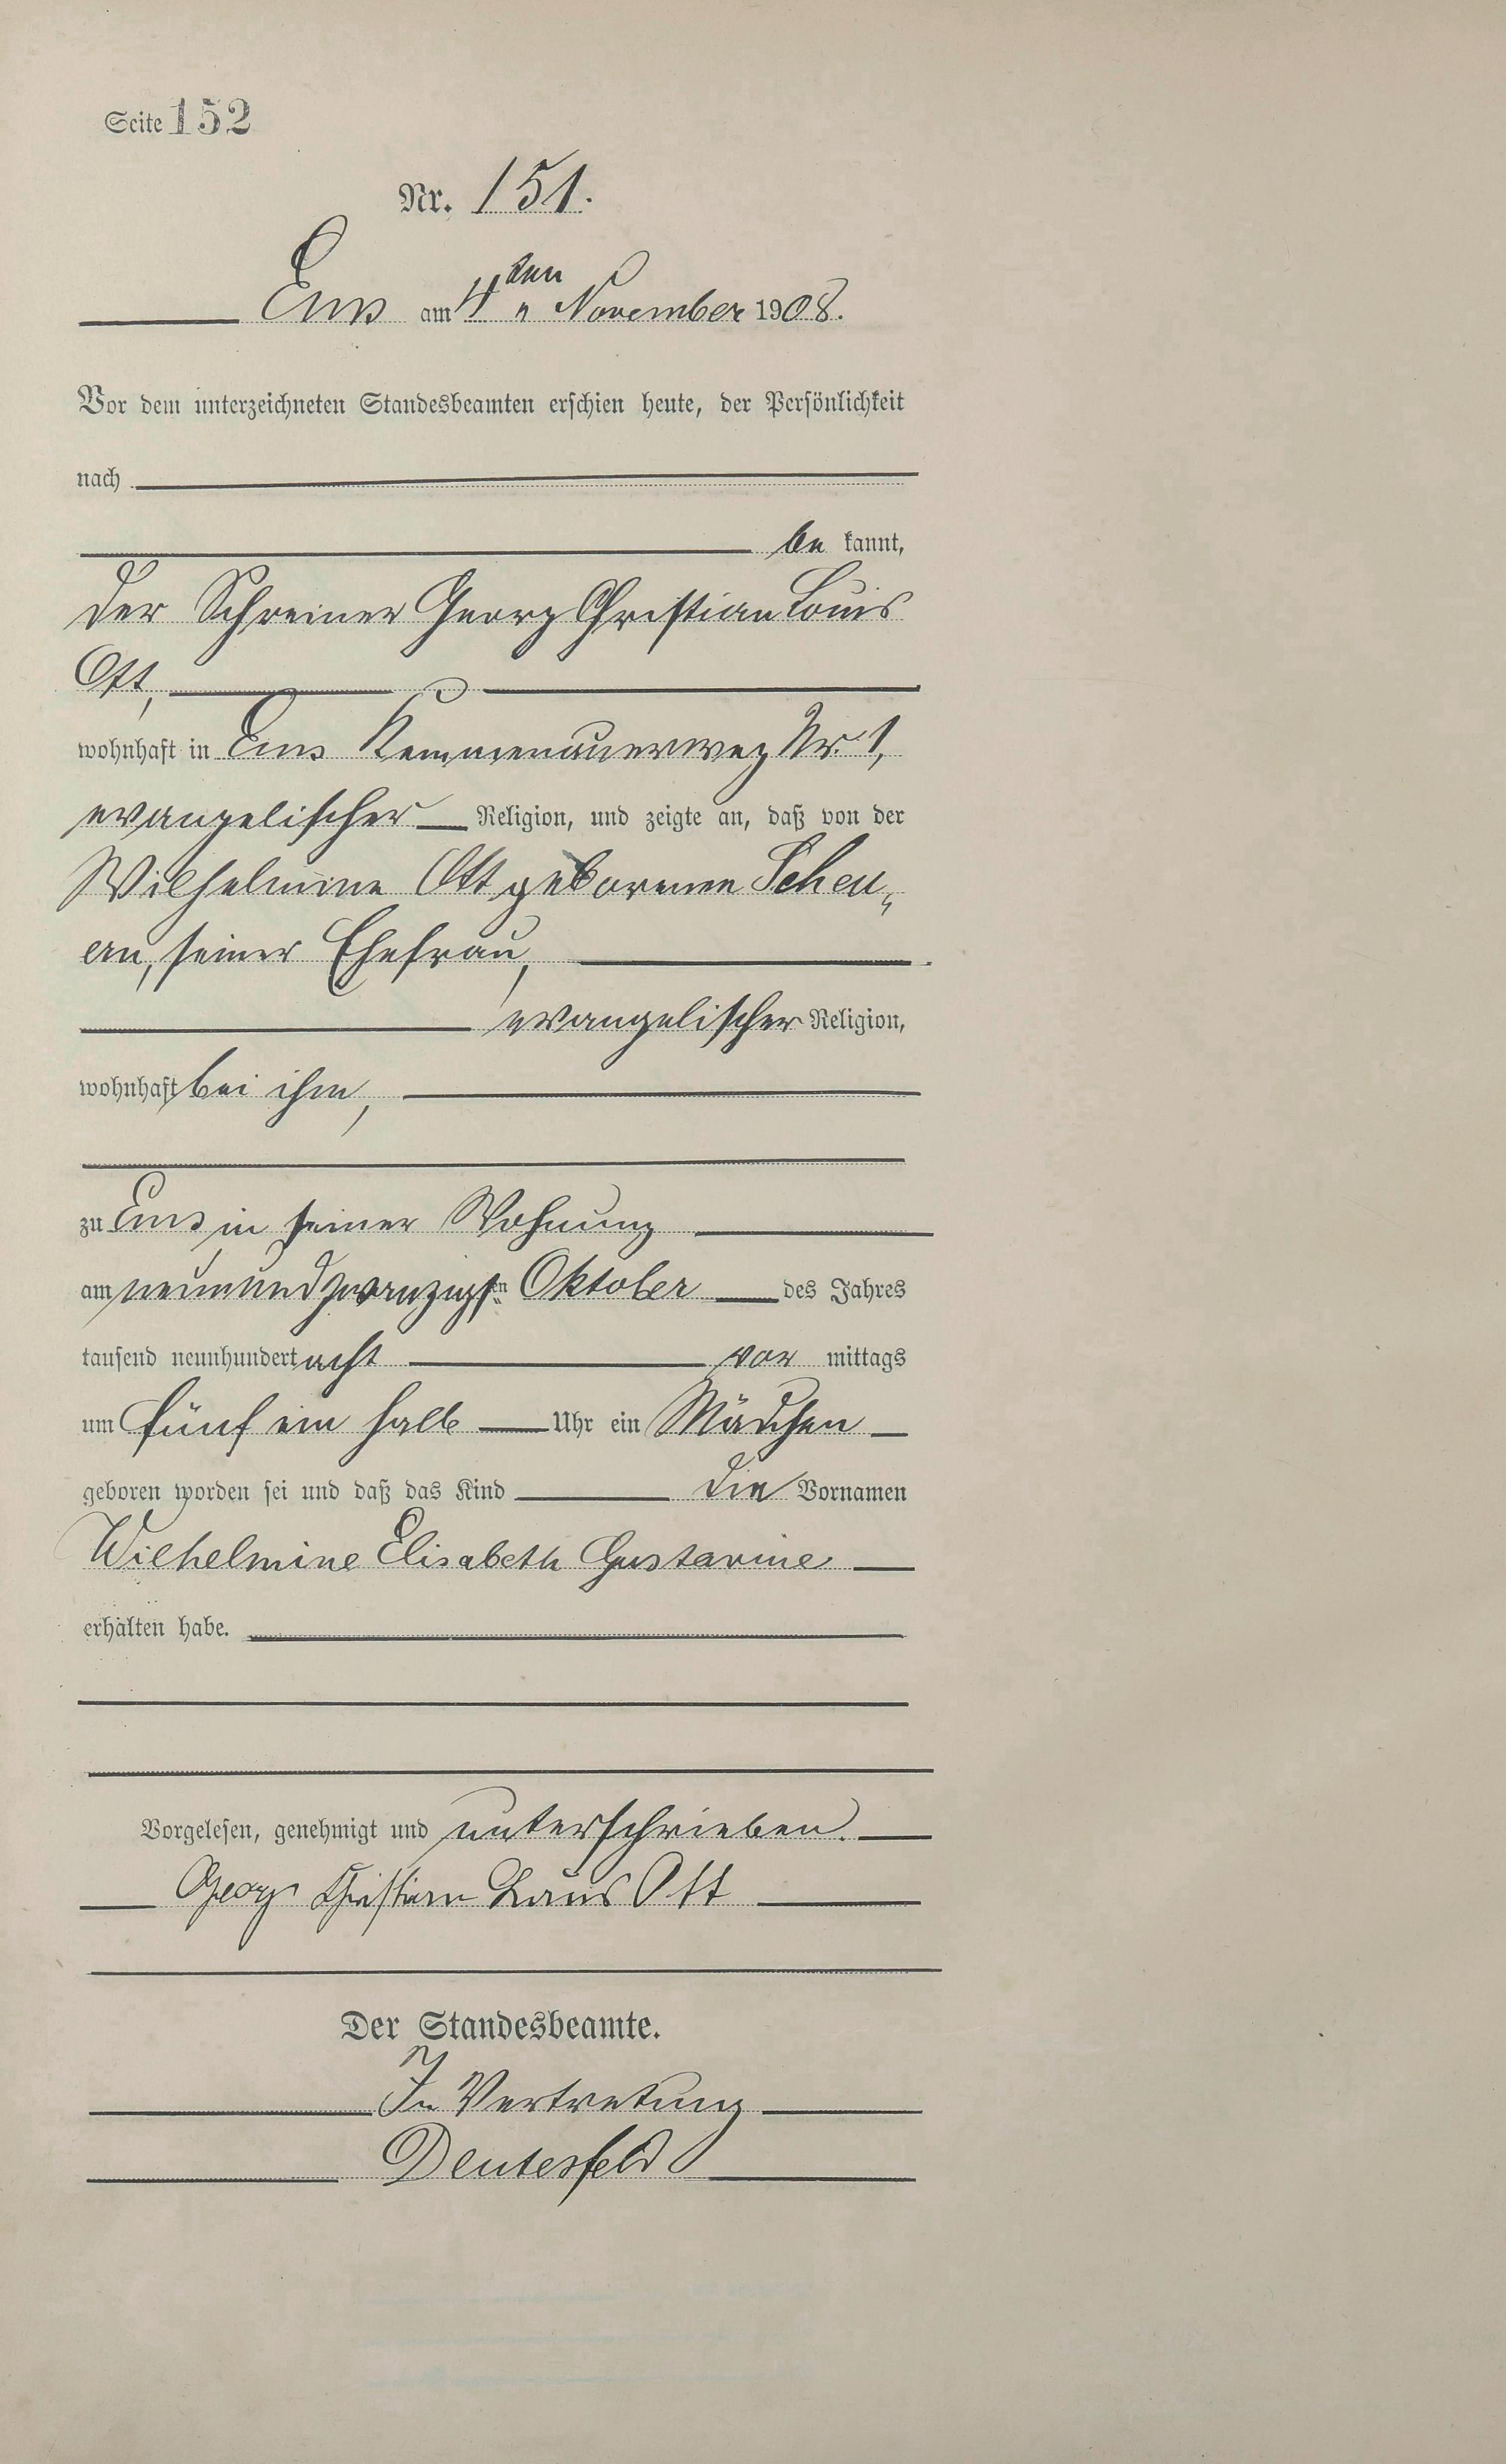 Seite 152
Nr. 151.
Ems am 4ten November 1908.
Vor dem unterzeichneten Standesbeamten erschien heute, der Persönlichkeit
nach
be kannt,
der Schreiner Georg Christian Louis
Ott,
wohnhaft in Ems Kemmenauerweg Nr. 1,
evangelischer Religion, und zeigte an, daß von der
Wilhelmine Ott geborenen Scheu„
en, seiner Ehefrau,
evangelischer Religion,
wohnhaft bei ihm,
zu Ems in seiner Wohnung
am neunundzwanzigsten Oktober des Jahres
tausend neunhundert acht vor mittags
um fünf ein halb Uhr ein Mädchen
geboren worden sei und daß das Kind die Vornamen
Wilhelmine Elisabeth Gustavine
erhalten habe.
Vorgelesen, genehmigt und unterschrieben.
Georg Christian Louis Ott
Der Standesbeamte.
In Vertretung
Deutesfeld